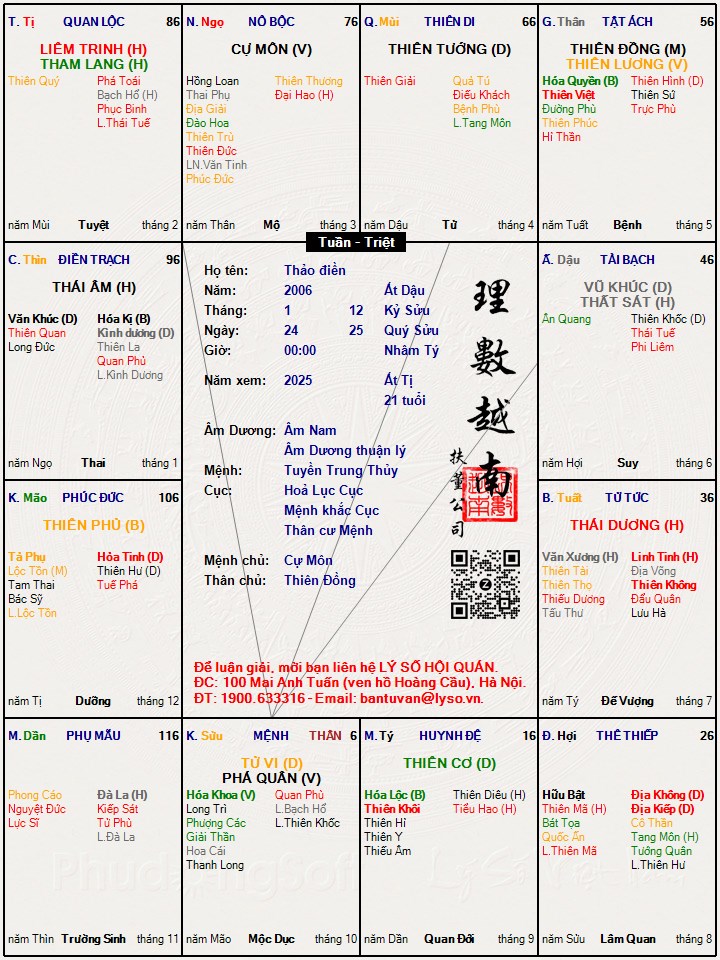 T. Tị QUAN LỘC 86
LIÊM TRINH (H)
THAM LANG (H)
Thiên Quý Phá Toái
Bạch Hổ (H)
Phục Binh
L.Thái Tuế
năm Mùi Tuyệt tháng 2
N. Ngọ NÔ BỘC 76
CỰ MÔN (V)
Hồng Loan Thiên Thương
Thai Phụ Đại Hao (H)
Địa Giải
Đào Hoa
Thiên Trù
Thiên Đức
LN.Văn Tinh
Phúc Đức
năm Thân Mộ tháng 3
Q. Mùi THIÊN DI 66
THIÊN TƯỚNG (D)
Thiên Giải Quả Tú
Điếu Khách
Bệnh Phù
L.Tang Môn
năm Dậu Tử tháng 4
G. Thân TẬT ÁCH 56
THIÊN ĐỒNG (M)
THIÊN LƯƠNG (V)
Hóa Quyền (B) Thiên Hình (D)
Thiên Việt Thiên Sứ
Đường Phù Trực Phù
Thiên Phúc
Hỉ Thần
năm Tuất Bệnh tháng 5
Tuần - Triệt
C. Thìn ĐIỀN TRẠCH 96
THÁI ÂM (H)
Văn Khúc (D) Hóa Kị (B)
Thiên Quan Kình dương (D)
Long Đức Thiên La
Quan Phủ
L.Kình Dương
năm Ngọ Thai tháng 1
Họ tên: Thảo điền
Năm: 2006 Ất Dậu
Tháng: 1 12 Kỷ Sửu
Ngày: 24 25 Quý Sửu
Giờ: 00:00 Nhâm Tý
Năm xem: 2025 Ất Tị
21 tuổi
Âm Dương: Âm Nam
Âm Dương thuận lý
Mệnh: Tuyền Trung Thủy
Cục: Hoả Lục Cục
Mệnh khắc Cục
Thân cư Mệnh
Mệnh chủ: Cự Môn
Thân chủ: Thiên Đồng
理數越南
扶董公司
Ấ. Dậu TÀI BẠCH 46
VŨ KHÚC (D)
THẤT SÁT (H)
Ân Quang Thiên Khốc (D)
Thái Tuế
Phi Liêm
năm Hợi Suy tháng 6
K. Mão PHÚC ĐỨC 106
THIÊN PHỦ (B)
Tả Phụ Hỏa Tinh (D)
Lộc Tồn (M) Thiên Hư (D)
Tam Thai Tuế Phá
Bác Sỹ
L.Lộc Tồn
năm Tị Dưỡng tháng 12
B. Tuất TỬ TỨC 36
THÁI DƯƠNG (H)
Văn Xương (H) Linh Tinh (H)
Thiên Tài Địa Võng
Thiên Thọ Thiên Không
Thiếu Dương Đẩu Quân
Tấu Thư Lưu Hà
năm Tý Đế Vượng tháng 7
Để luận giải, mời bạn liên hệ LÝ SỐ HỘI QUÁN.
ĐC: 100 Mai Anh Tuấn (ven hồ Hoàng Cầu), Hà Nội.
ĐT: 1900.633316 - Email: bantuvan@lyso.vn.
M. Dần PHỤ MẪU 116
Phong Cáo Đà La (H)
Nguyệt Đức Kiếp Sát
Lực Sĩ Tử Phù
L.Đà La
năm Thìn Trường Sinh tháng 11
K. Sửu MỆNH THÂN 6
TỬ VI (D)
PHÁ QUÂN (V)
Hóa Khoa (V) Quan Phù
Long Trì L.Bạch Hổ
Phượng Các L.Thiên Khốc
Giải Thần
Hoa Cái
Thanh Long
năm Mão Mộc Dục tháng 10
M. Tý HUYNH ĐỆ 16
THIÊN CƠ (D)
Hóa Lộc (B) Thiên Diêu (H)
Thiên Khôi Tiểu Hao (H)
Thiên Hỉ
Thiên Y
Thiếu Âm
năm Dần Quan Đới tháng 9
Đ. Hợi THÊ THIẾP 26
Hữu Bật Địa Không (D)
Thiên Mã (H) Địa Kiếp (D)
Bát Tọa Cô Thần
Quốc Ấn Tang Môn (H)
L.Thiên Mã Tướng Quân
L.Thiên Hư
năm Sửu Lâm Quan tháng 8